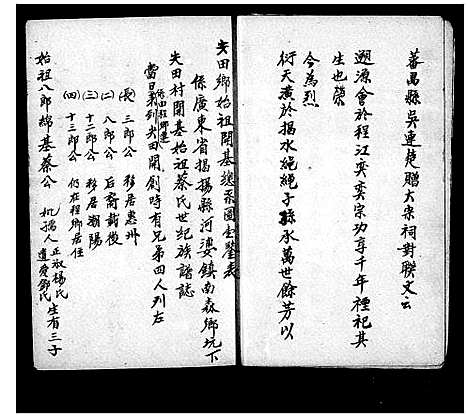 蕃禺縣吳連楚贈大宗祠對聯文云
遡源會於程江奕奕宗功享千年禋祀其
生也榮
今為烈
衍天潢於揭水繩繩子孫永萬世餘芳以
矢田鄉始祖開基總系圖全鑒表
係廣東省揭揚縣河婆鎮南森鄉坑下
矢田村開基始祖蔡氏世紀族譜誌
當日來到矢田開創時有兄弟四人列左
係由程鄉遷
(長) 三郎公 移居惠州
(二) 八郎公 后裔載後
(三) 十二郎公 移居潮陽
(四) 十三郎公 仍在程鄉居住
始祖八郎綿基蔡公
机孺人
正放楊氏
遺愛鄧氏
生有三子